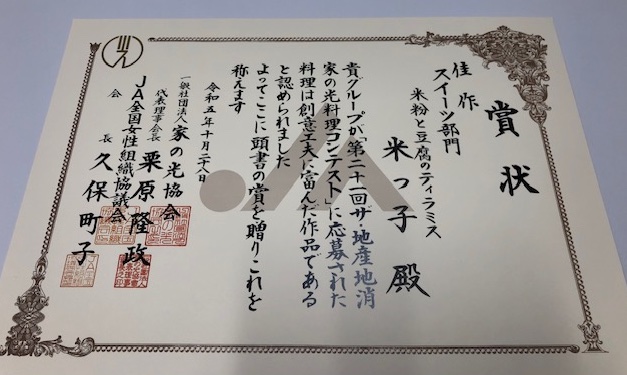 賞状
佳作
スイーツ部門
米粉と豆腐のティラミス
米っ子 殿
貴グループが「第二十一回ザ・地産地消
家の光料理コンテスト」に応募された
料理は創意工夫に富んだ作品である
と認められました
よってここに頭書の賞を贈りこれを
称えます
令和五年十月二十八日
一般社団法人 家の光協会
代表理事会長 栗原隆政
JA全国女性組織協議会
会長 久保町子